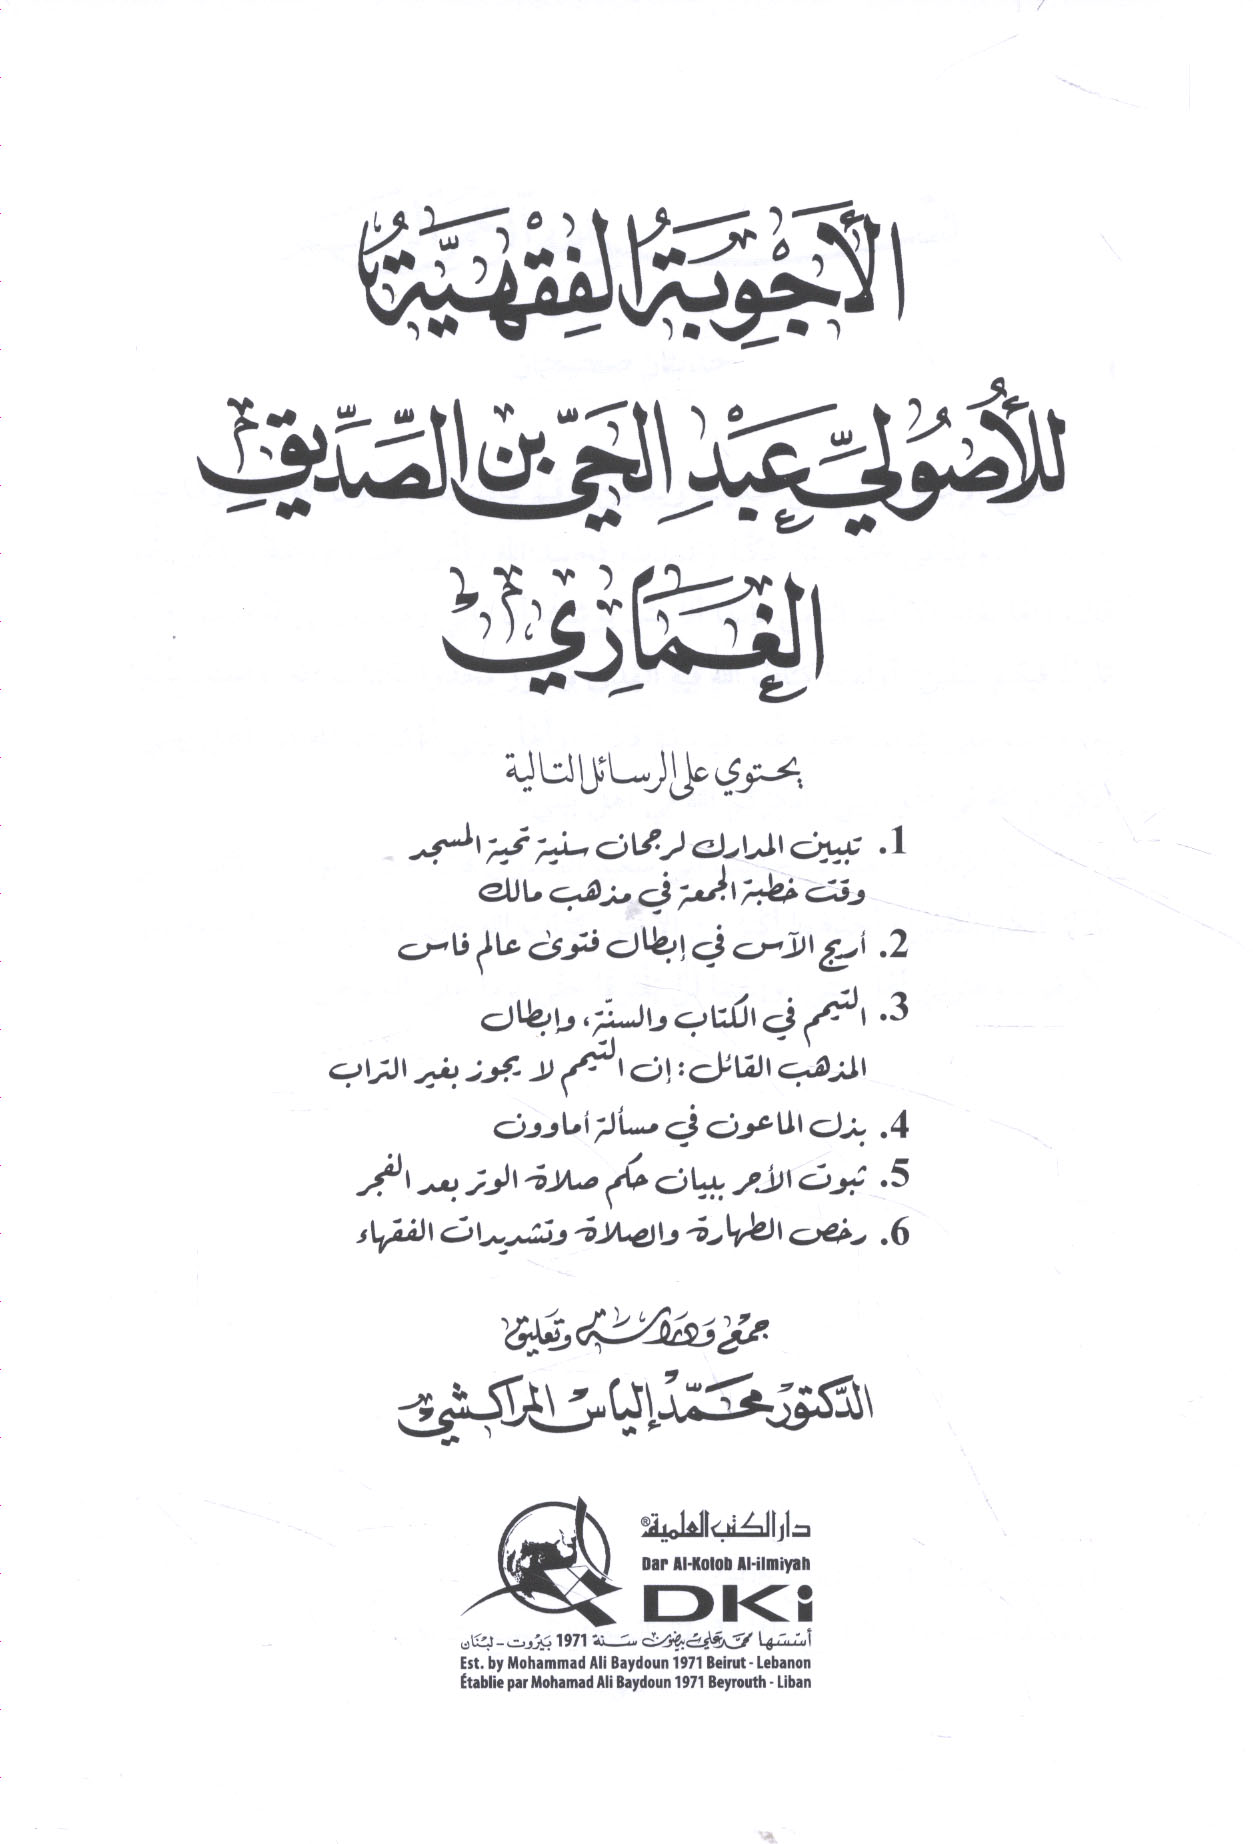 الأَجْوِبَةُ الفِقْهِيَّةُ
للأُصُولِيِّ عَبْدِ الحَيِّ بن الصِّدِّيقِ
الغُمَارِي
يحتوي على الرسائل التالية
1. تبيين المدارك لرجحان سنية تحية المسجد
وقت خطبة الجمعة في مذهب مالك
2. أريج الآس في إبطال فتوى عالم فاس
3. التيمم في الكتاب والسنّة، وإبطال
المذهب القائل: إن التيمم لا يجوز بغير التراب
4. بذل الماعون في مسألة أماوون
5. ثبوت الأجر ببيان حكم صلاة الوتر بعد الفجر
6. رخص الطهارة والصلاة وتشديدات الفقهاء
جمع ودراسة وتعليق
الدّكتور محمّد إلياس المراكشي
دار الكتب العلمية®
Dar Al-Kotob Al-ilmiyah
DKi
أسّسها محمد علي بيضون سنة 1971 بيروت - لبنان
Est. by Mohammad Ali Baydoun 1971 Beirut - Lebanon
Établie par Mohamad Ali Baydoun 1971 Beyrouth - Liban